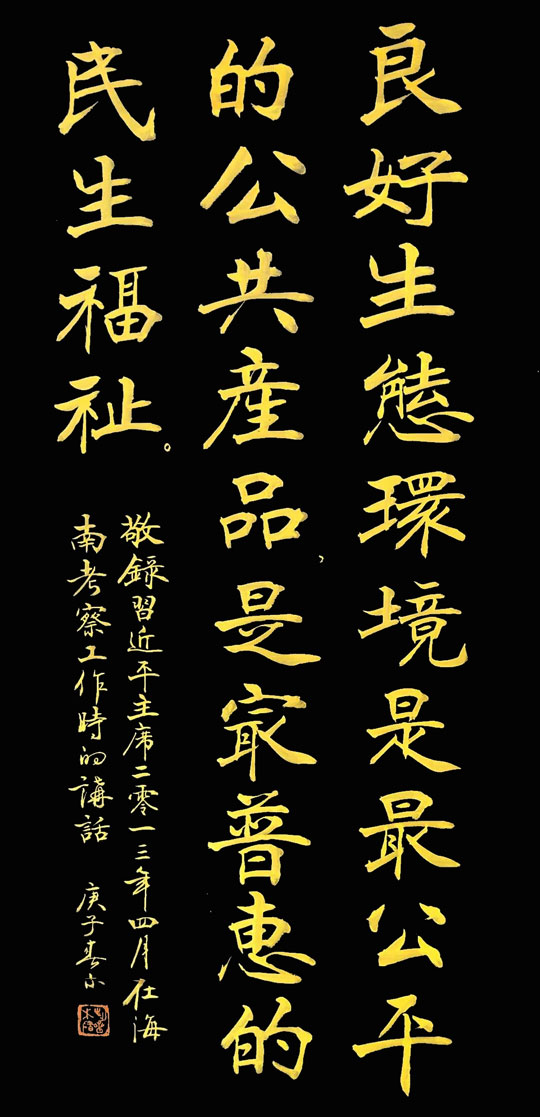 良好生態環境是最公平
的公共産品，是㝡普惠的
民生福祉。
敬錄習近平主席二零一三年四月在海
南考察工作時的講話 庚子春